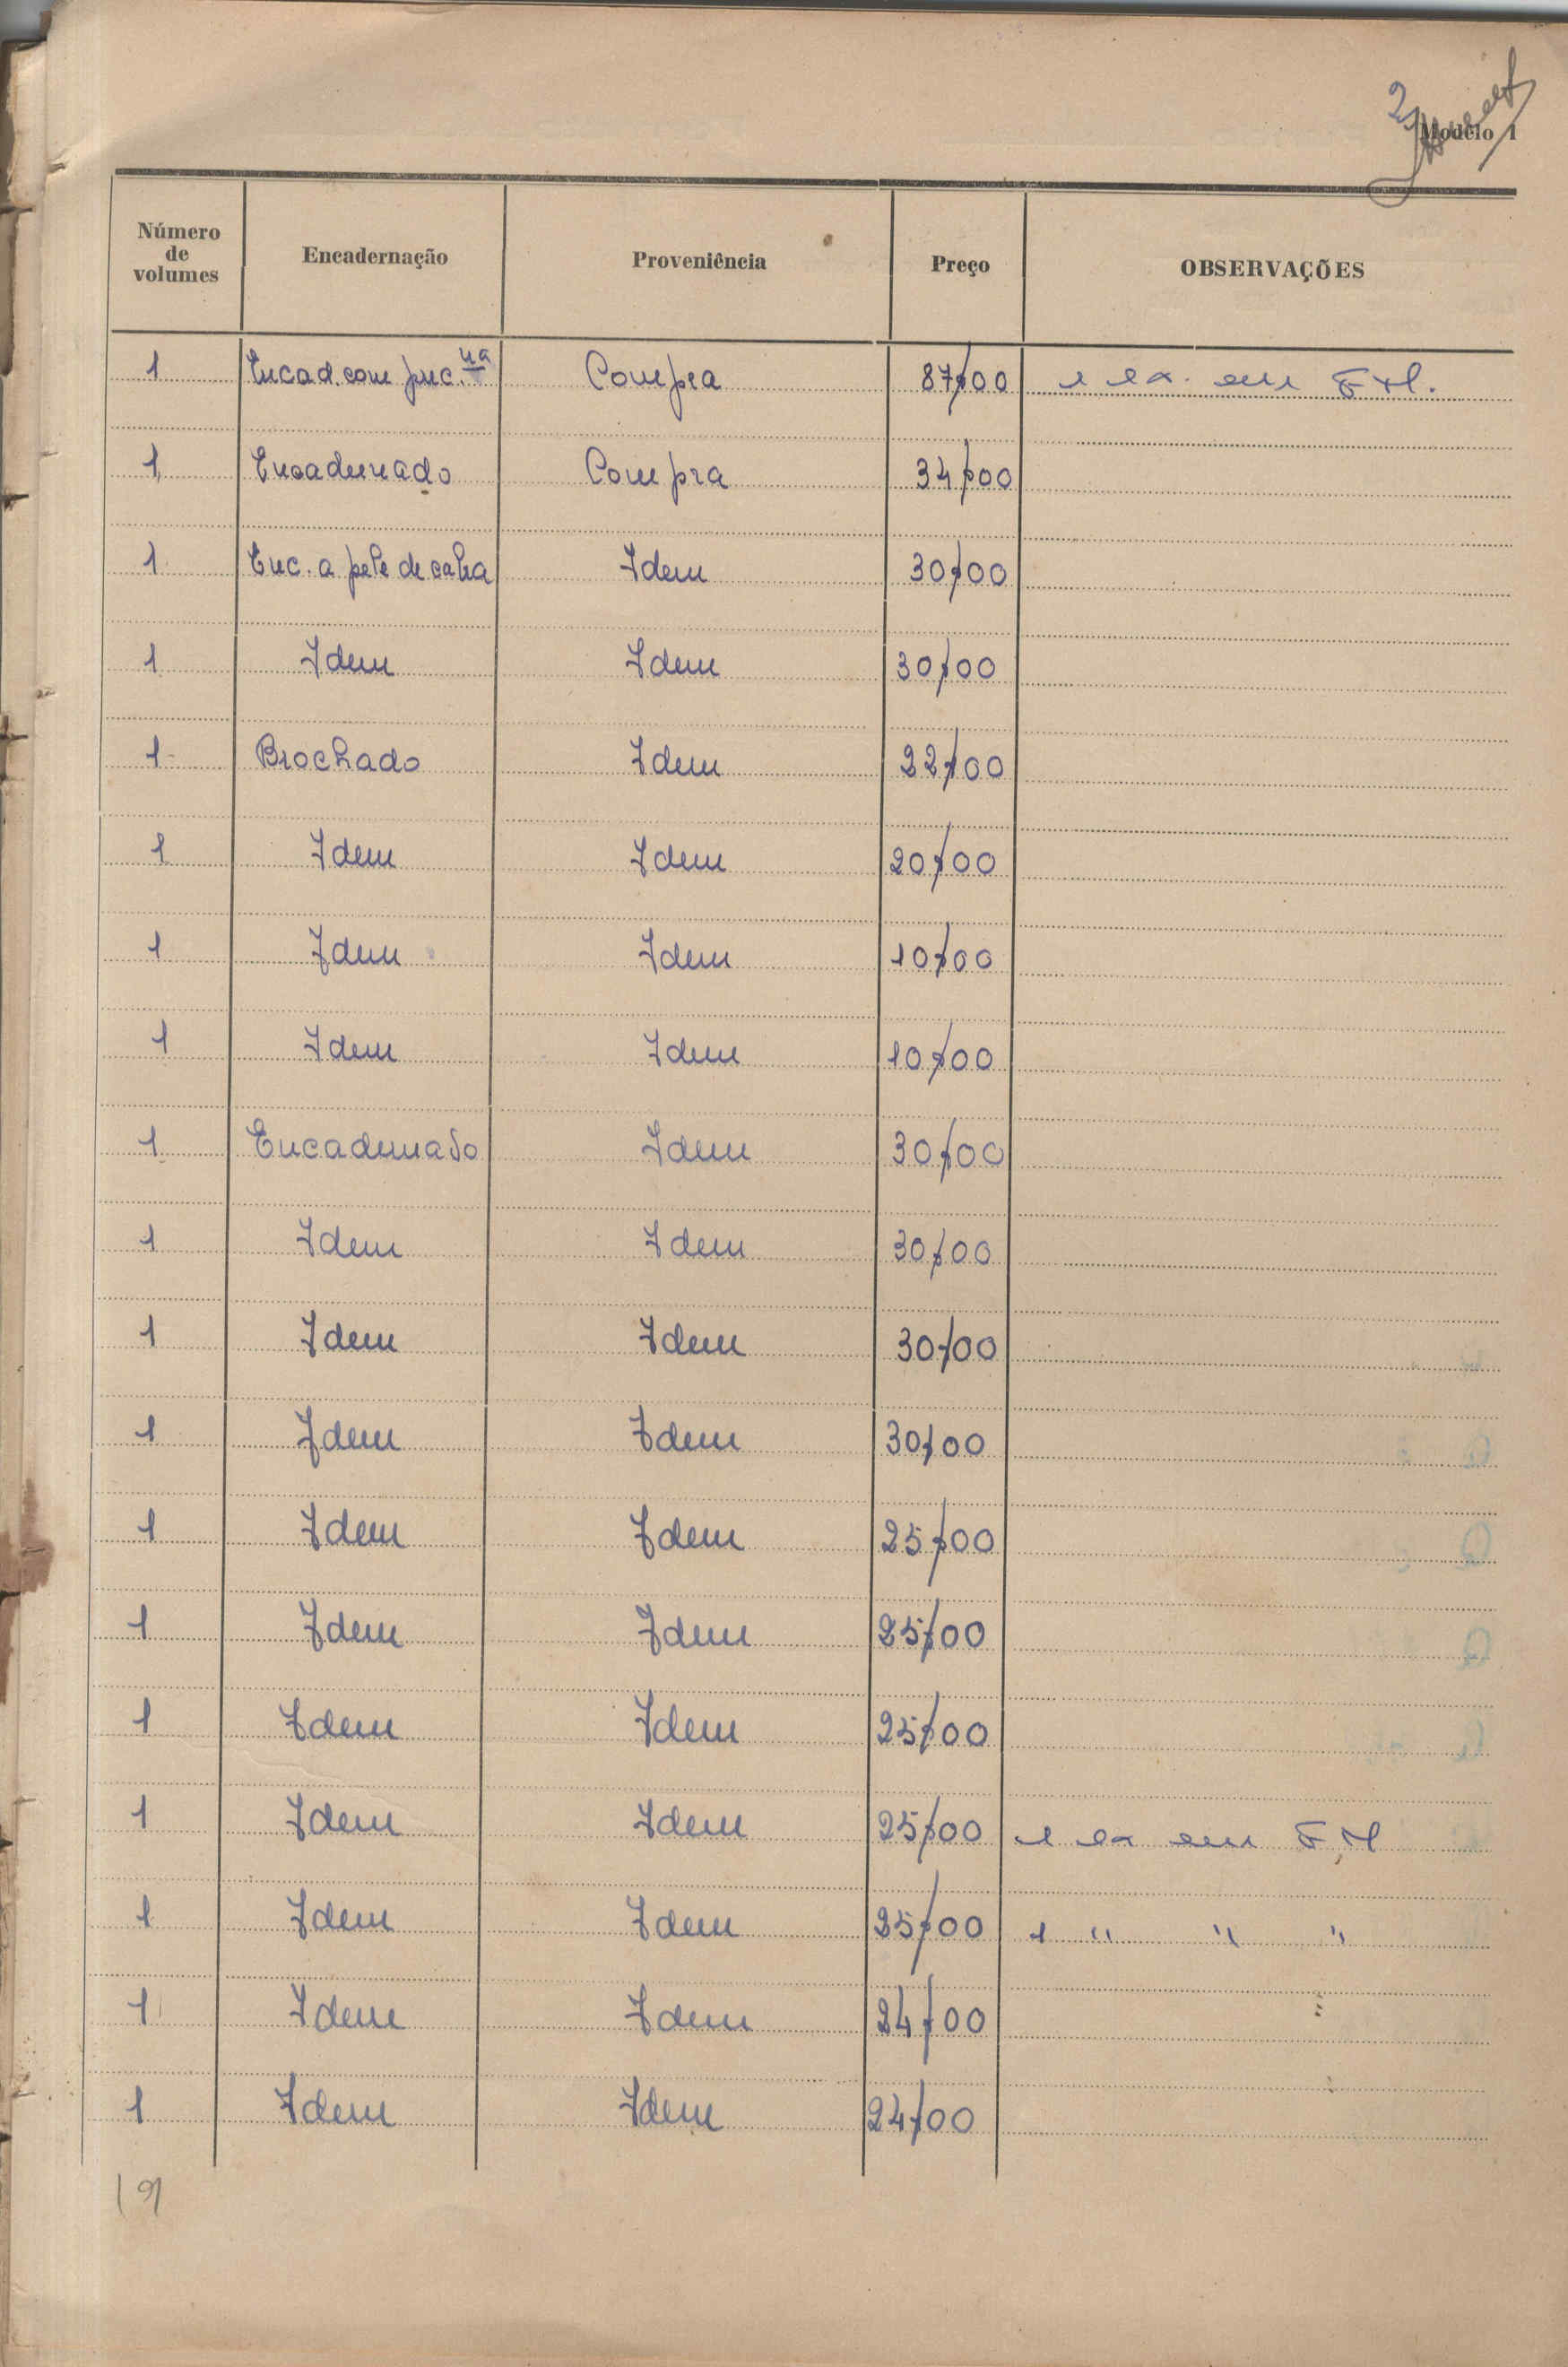 2
Modelo 1
Número de volumes Encadernação Proveniência Preço OBSERVAÇÕES
1 Encad. com Compra 87$00 1 ex. em F.M.
1 Encadernado Compra 34$00
1 Enc. a pele de cabra Idem 30$00
1 Idem Idem 30$00
1 Brochado Idem 22$00
1 Idem Idem 20$00
1 Idem Idem 10$00
1 Idem Idem 10$00
1 Encadernado Idem 30$00
1 Idem Idem 30$00
1 Idem Idem 30$00
1 Idem Idem 30$00
1 Idem Idem 25$00
1 Idem Idem 25$00
1 Idem Idem 25$00
1 Idem Idem 25$00 1 ex em F.M
1 Idem Idem 25$00 1 " " "
1 Idem Idem 24$00
1 Idem Idem 24$00
19